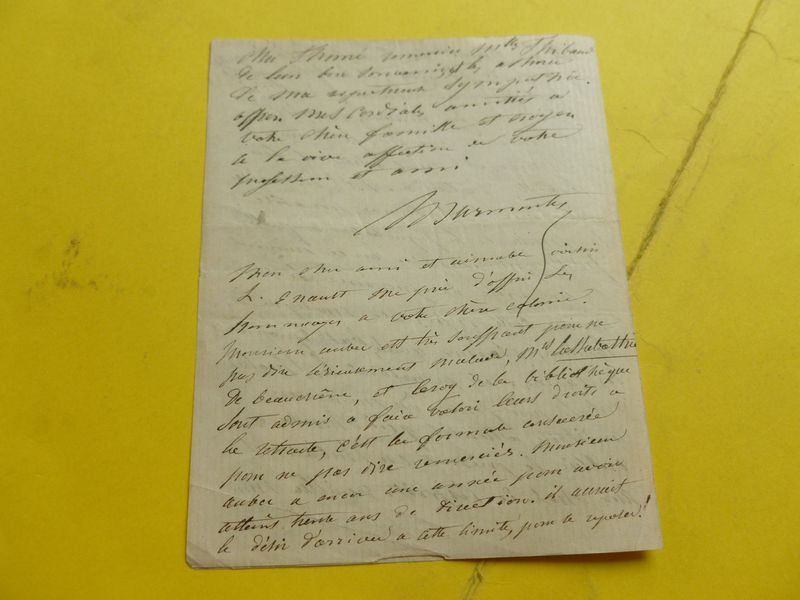 Mr Thomé remercie Mlles Thibaud
de leur bon souvenir et les assure
de ma respectueuse sympathie.
offrez mes cordiales amitiés a
votre chère famille et croyez
a la vive affection de votre
professeur et ami
Marmontel
Mon cher ami et aimable voisin
L. Enault me prie d'offrir ses
hommages a votre chère colonie.
Monsieur auber est très souffrant pour ne
pas dire sérieusement malade, Mrs Lassabathie
De beauchêne, et Leroy de la bibliothèque
sont admis a faire valoir leurs droits a
la retraite, c'est la formule consacrée
pour ne pas dire remerciés. Monsieur
auber a encor une année pour avoir
atteint trente ans de direction. il aurait
le désir d'arriver a cette limite, pour se reposer!